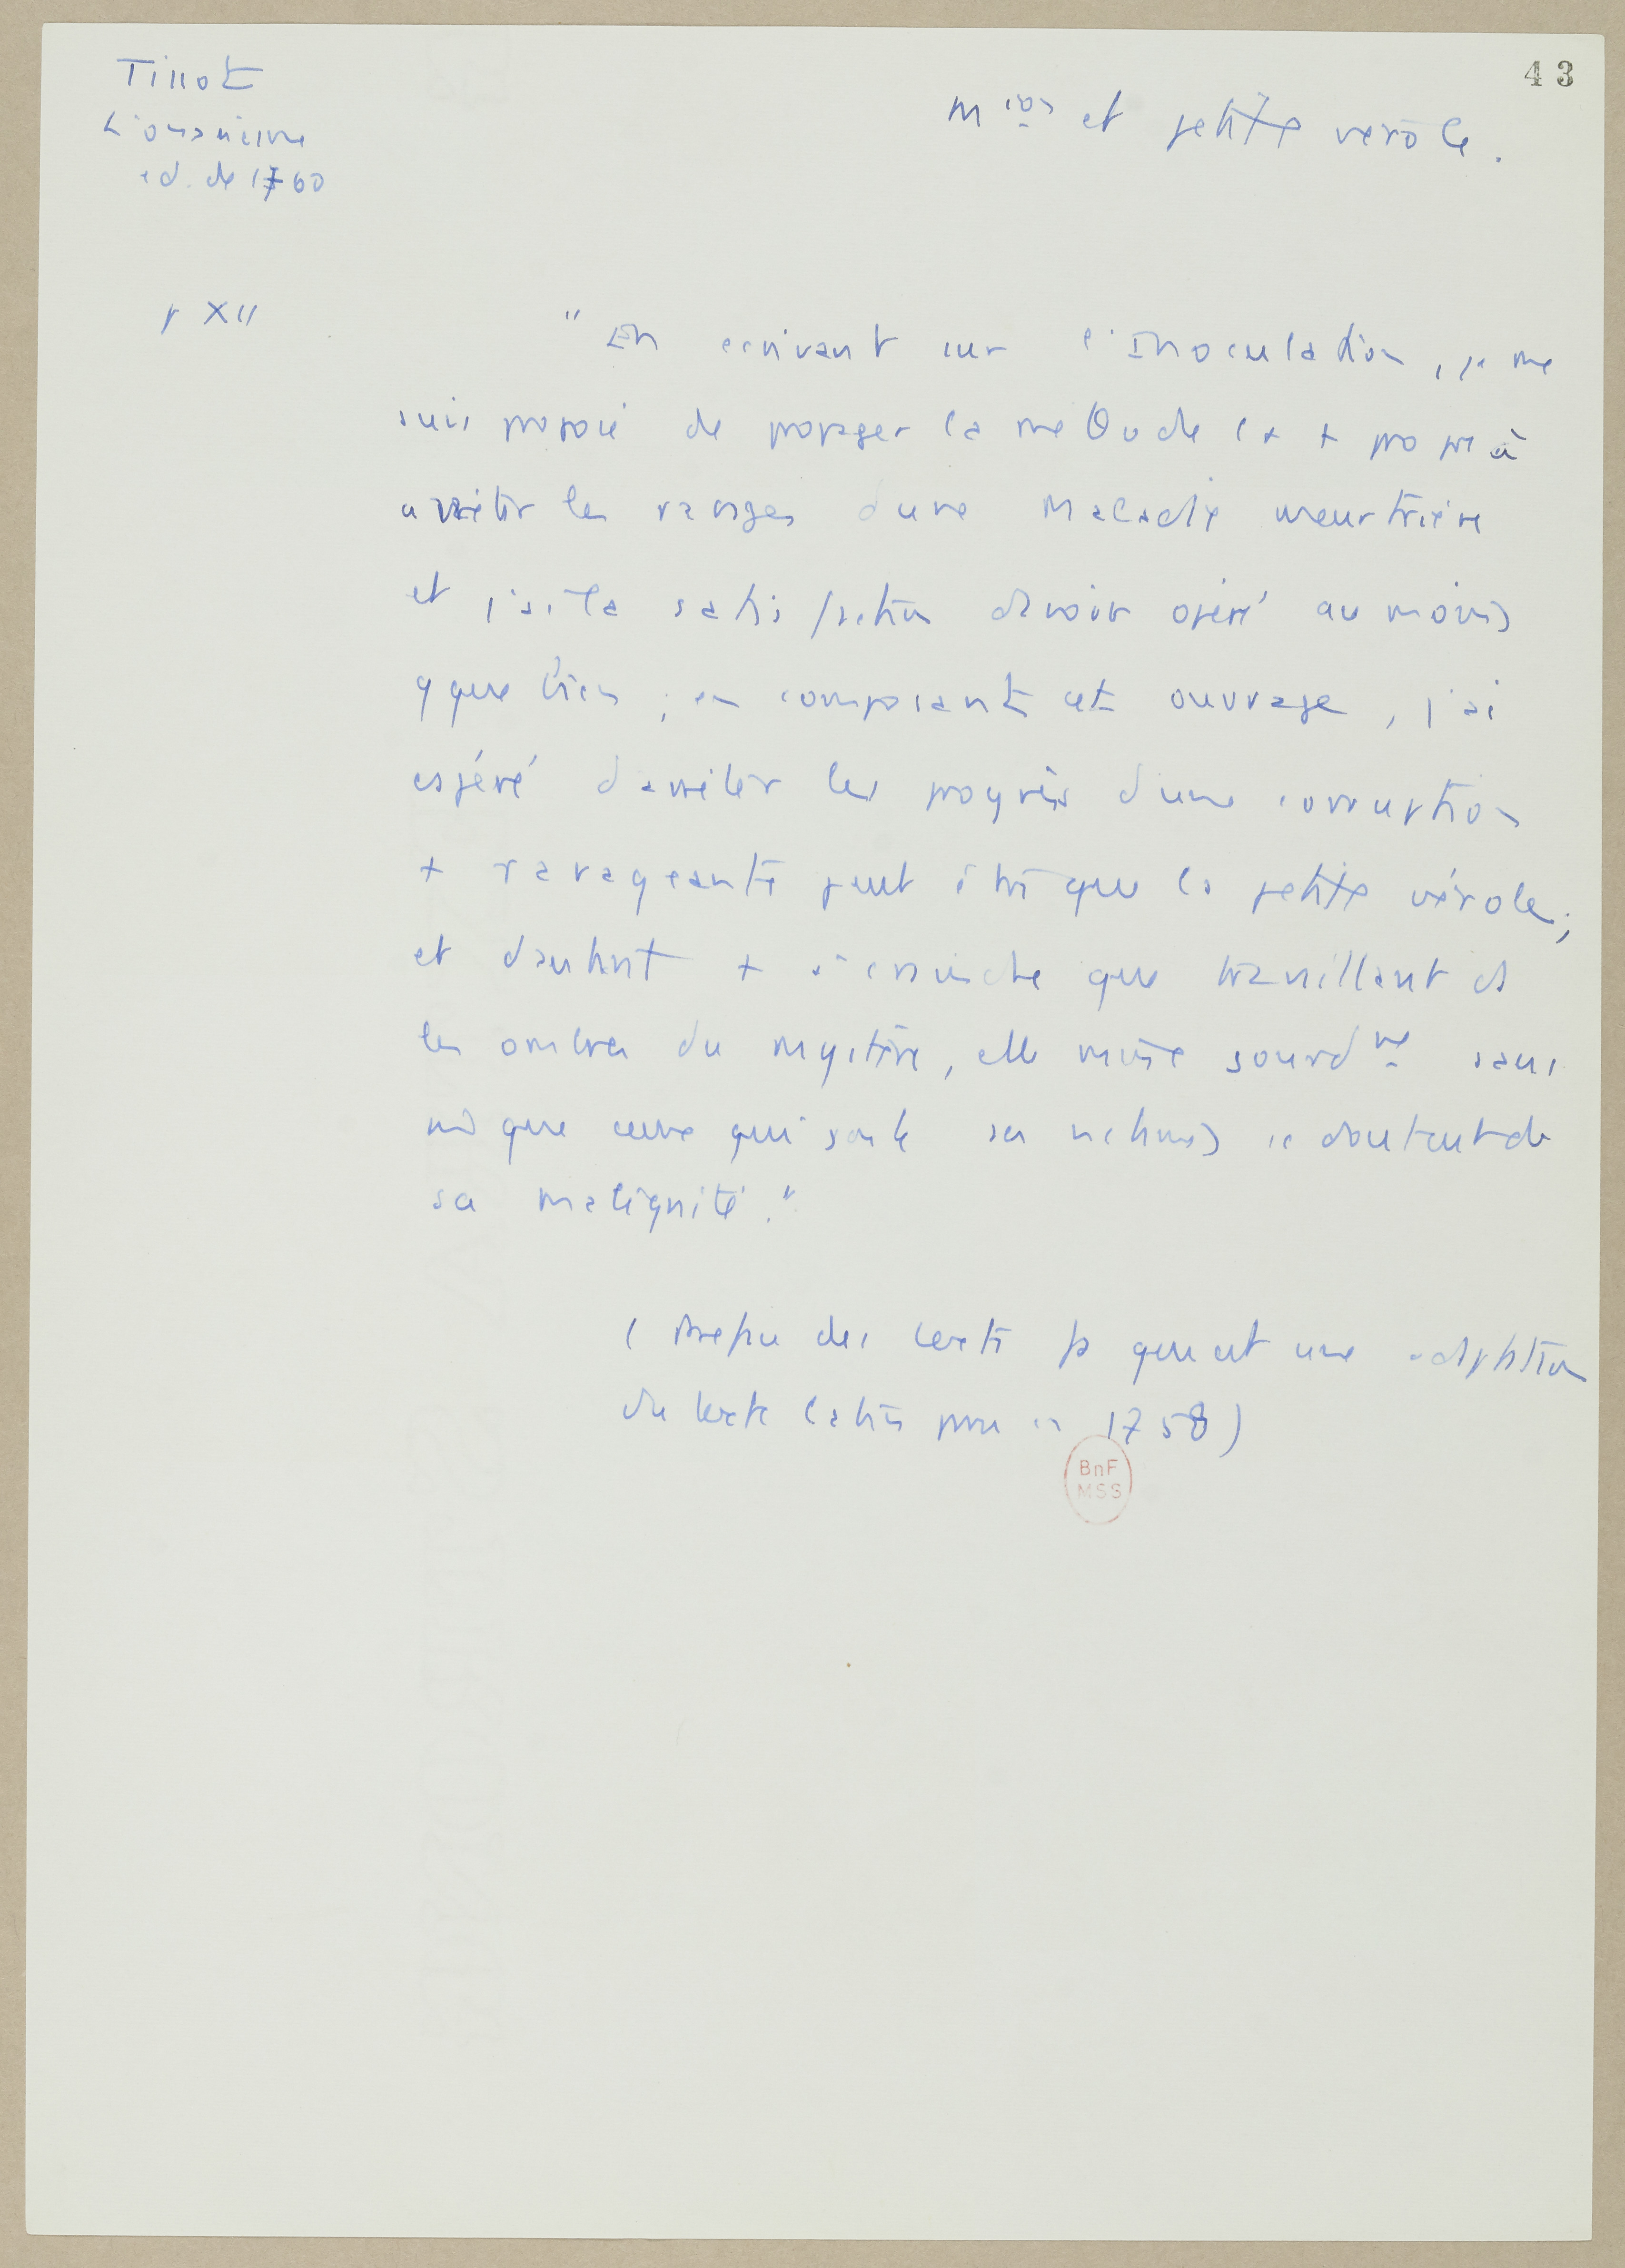 43
Tissot
L'onanisme
ed. de 1760
Mion et petite vérole.
p XII
"En ecrivant sur l'Inoculation, je me
suis proposé de propager la methode la + propre à
arrêter les ravages d'une Maladie meurtrière
et j'ai la satisfaction d'avoir opéré au moins
qque bien ; en composant cet ouvrage, j'ai
espéré d'arrêter les progrès d'une corruption
+ ravageante peut être que la petite vérole ;
et d'autant + à craindre que travaillant ds
les ombres du mystère, elle mine sourdmt sans
mê que ceux qui sont ses victimes se doutent de
sa malignité."
( Préface du texte fs qui est une adaptation
du texte latin paru en 1758)
BnF
MSS